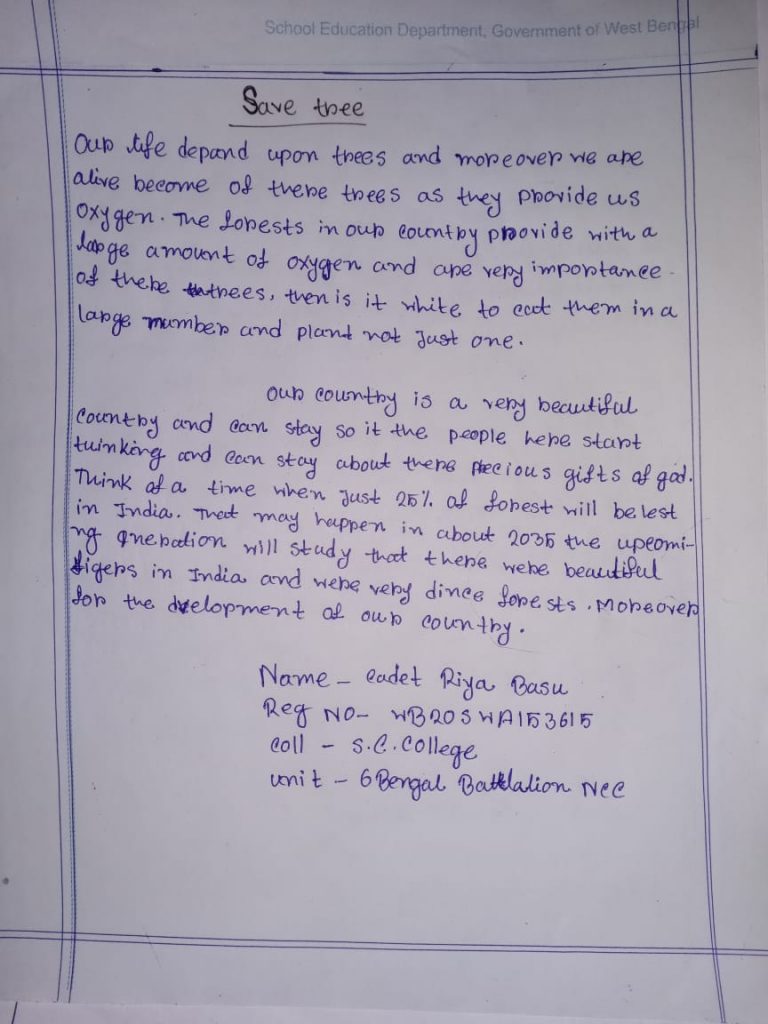 School Education Department, Government of West Bengal
Save tree
Our life depand upon trees and moreover we are
alive become of there trees as they provide us
Oxygen. The forests in our country provide with a
large amount of oxygen and are very importance.
of there trees, then is it white to cut them in a
large number and plant not Just one.
Our country is a very beautiful
country and can stay so it the people here start
tuinking and can stay about there precious gifts of god.
Think of a time when Just 25% of forest will be lest
in India. That may happen in about 2035 the upcomi-
ng gneration will study that there were beautiful
tigers in India and were very dince forests. Moreover
for the development of our country.
Name - Cadet Riya Basu
Reg NO- WB20SWA153615
Coll - S.C. College
unit - 6 Bengal Battalion NCC